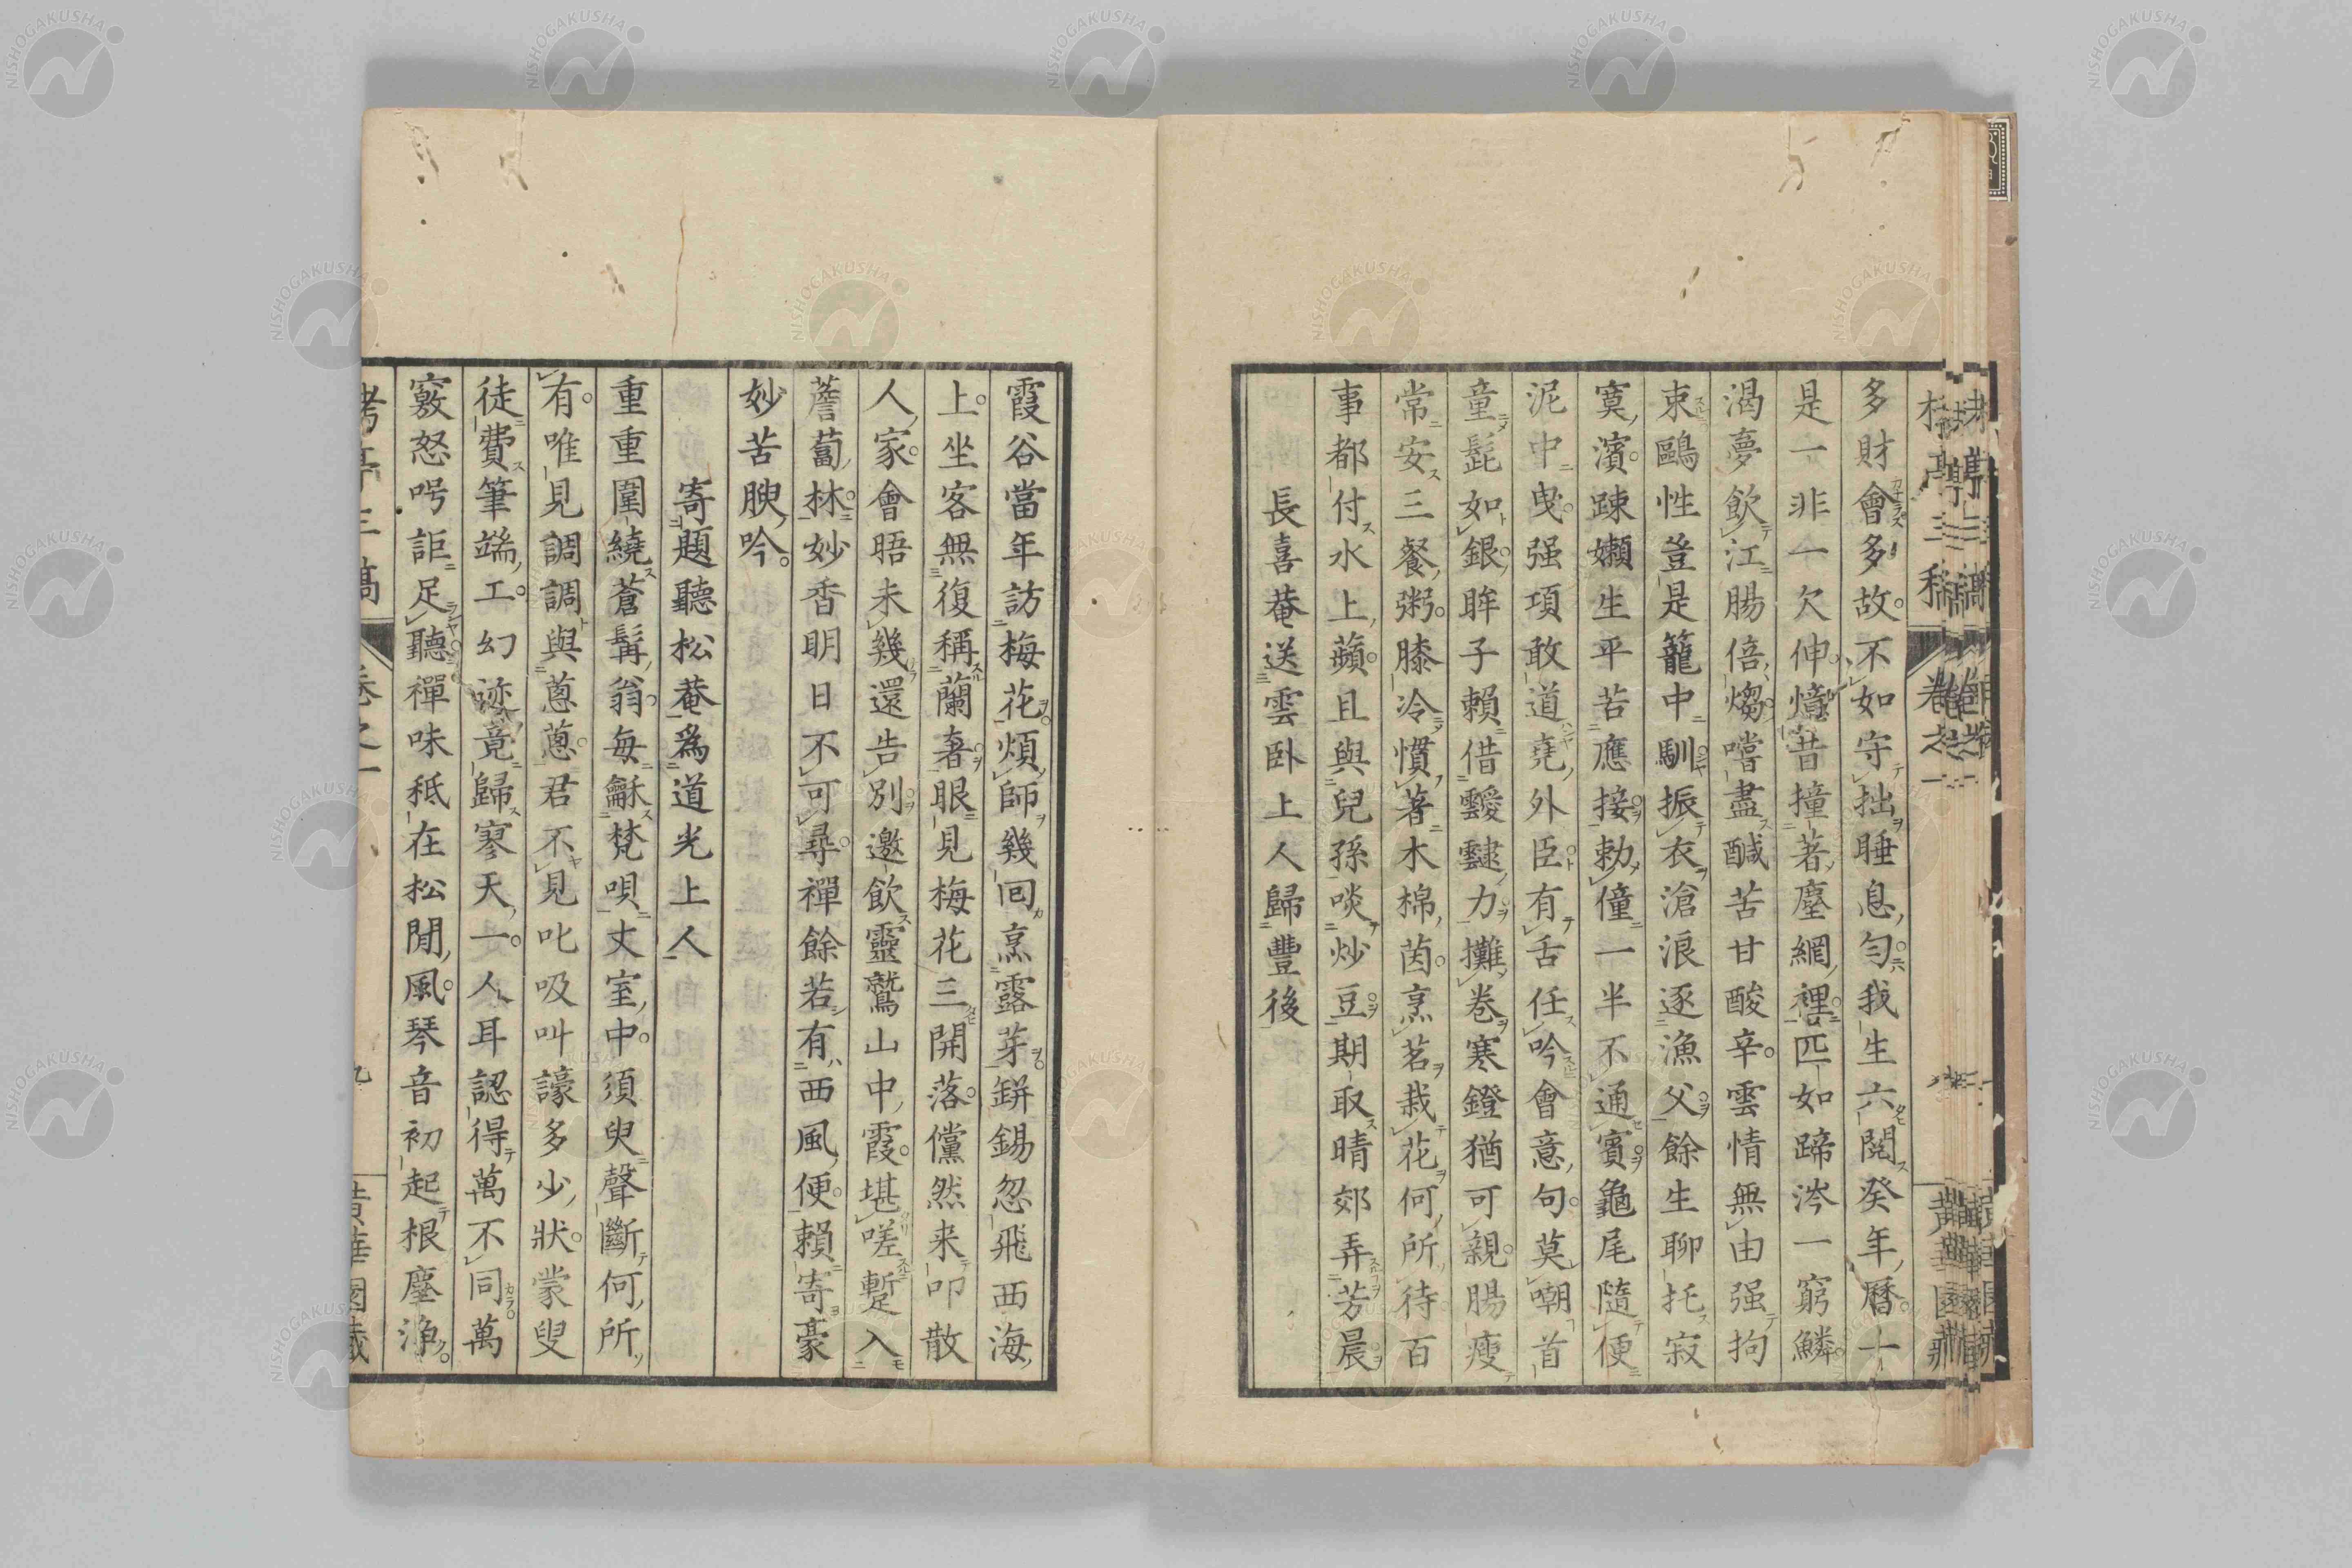 多財會多故不如守拙睡息匀我生六閱癸年曆十
是一非一欠伸憶昔撞著塵網裡匹如蹄涔一窮鱗
渴夢飲江腸倍熱嚐盡醎苦甘酸辛雲情無由强拘
束鷗性豈是籠中馴振衣滄浪逐漁父餘生聊托寂
寞濱踈嬾生平苦應接勅僮一半不通賓龜尾隨便
泥中曳强項敢道堯外臣有舌任吟會意句莫嘲首
童髭如銀眸子賴借靉靆力攤卷寒鐙猶可親腸瘦
常安三餐粥膝冷慣著木棉茵烹茗栽花何所待百
事都付水上蘋且與兒孫啖炒豆期取晴郊弄芳晨
長喜菴送雲卧上人歸豐後
霞谷當年訪梅花煩師幾回烹露芽缾錫忽飛西海
上坐客無復稱蘭奢眼見梅花三開落儻然来叩散
人家會晤未幾還告別邀飲靈鷲山中霞堪嗟蹔入
薝蔔林妙香明日不可尋禪餘若有西風便賴寄豪
妙苦腴吟
寄題聽松菴爲道光上人
重重圍繞蒼髯翁每龢梵唄丈室中須臾聲斷何所
有唯見調調與蒽蒽君不見叱吸叫譹多少狀蒙叟
徒費筆端工幻迹竟歸寥天一人耳認得萬不同萬
竅怒呺詎足聽禪味秪在松閒風琴音初起根塵淨
卷之一
黃華園藏